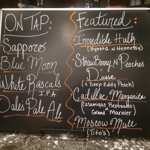 ON TAP:
Sapporo
Blue Moon
White Rascals
I.P.A
Dales Pale Ale
Featured:
Incredible Hulk
(Hpnotiq n Hennessy)
StrawBerry n Peaches
Deep Eddy Peach
Cadillac Margarita
Grand Marnier)
Moscow Mule
(Tito's)